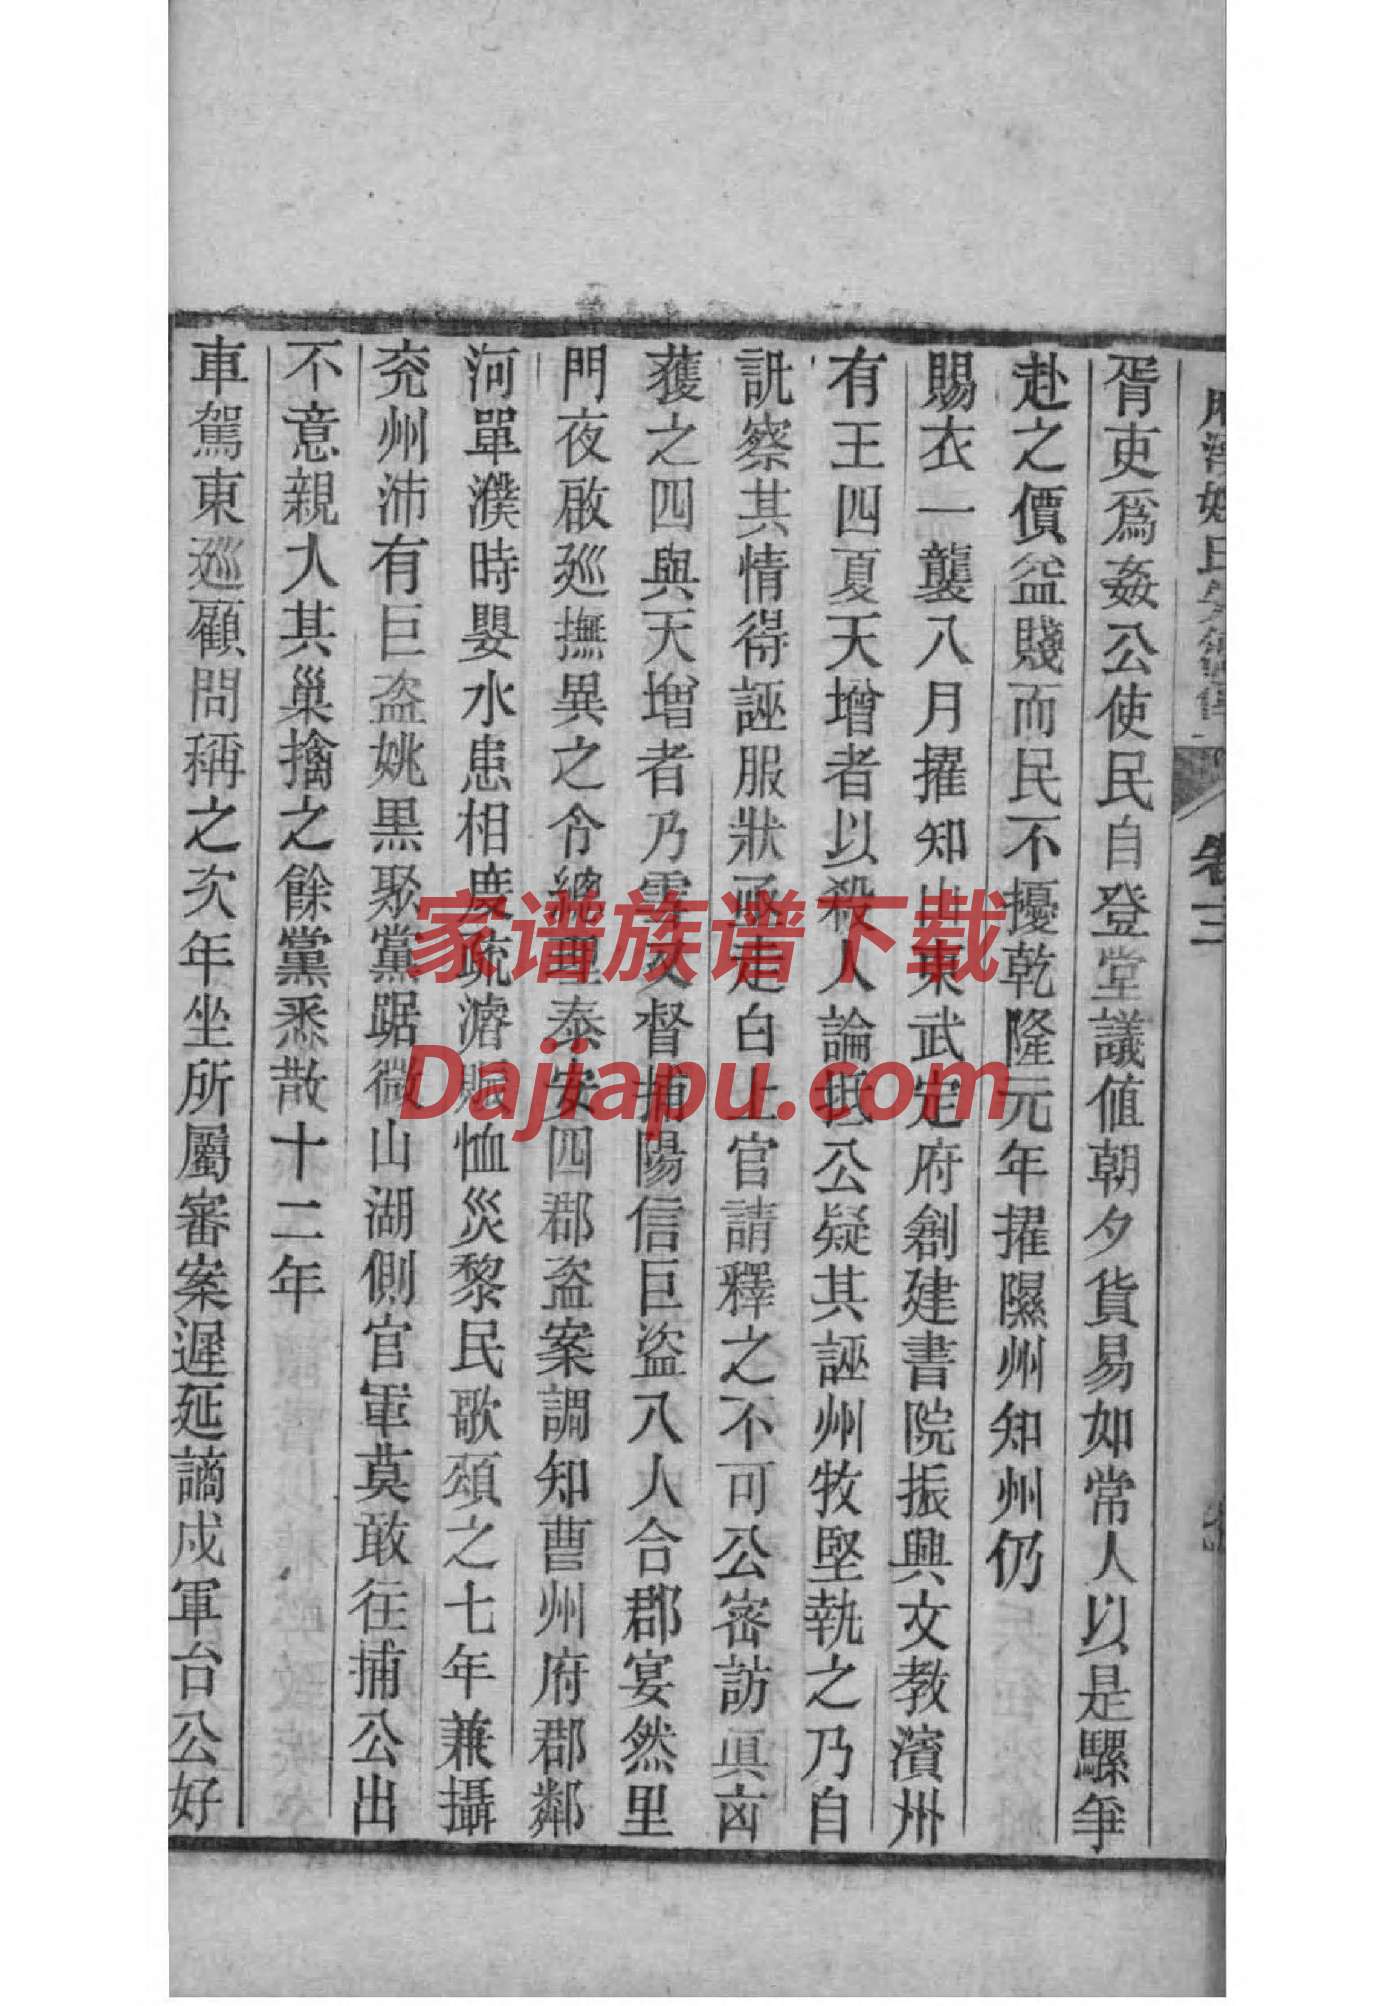 胥吏爲姦公使民自登堂議値朝夕貨易如常人以是騾爭
赴之價益賤而民不擾乾隆元年擢隰州知州仍
賜衣一襲八月擢知山東武定府創建書院振興文教濱州
有王四夏天增者以殺人論抵公疑其誣州牧堅執之乃自
訊察其情得誣服狀亟走白上官請釋之不可公密訪眞凶
獲之四與天增者乃雪又督捕陽信巨盜八人合郡宴然里
門夜啟巡撫異之令總理泰安四郡盜案調知曹州府郡鄰
河單濮時嬰水患相度疏濬賑恤災黎民歌頌之七年兼攝
兖州沛有巨盜姚黑聚黨踞微山湖側官軍莫敢往捕公出
不意親入其巢擒之餘黨悉散十二年
車駕東巡顧問稱之次年坐所屬審案遲延謫戍軍台公好
卷三
家谱族谱下载
Dajiapu.com